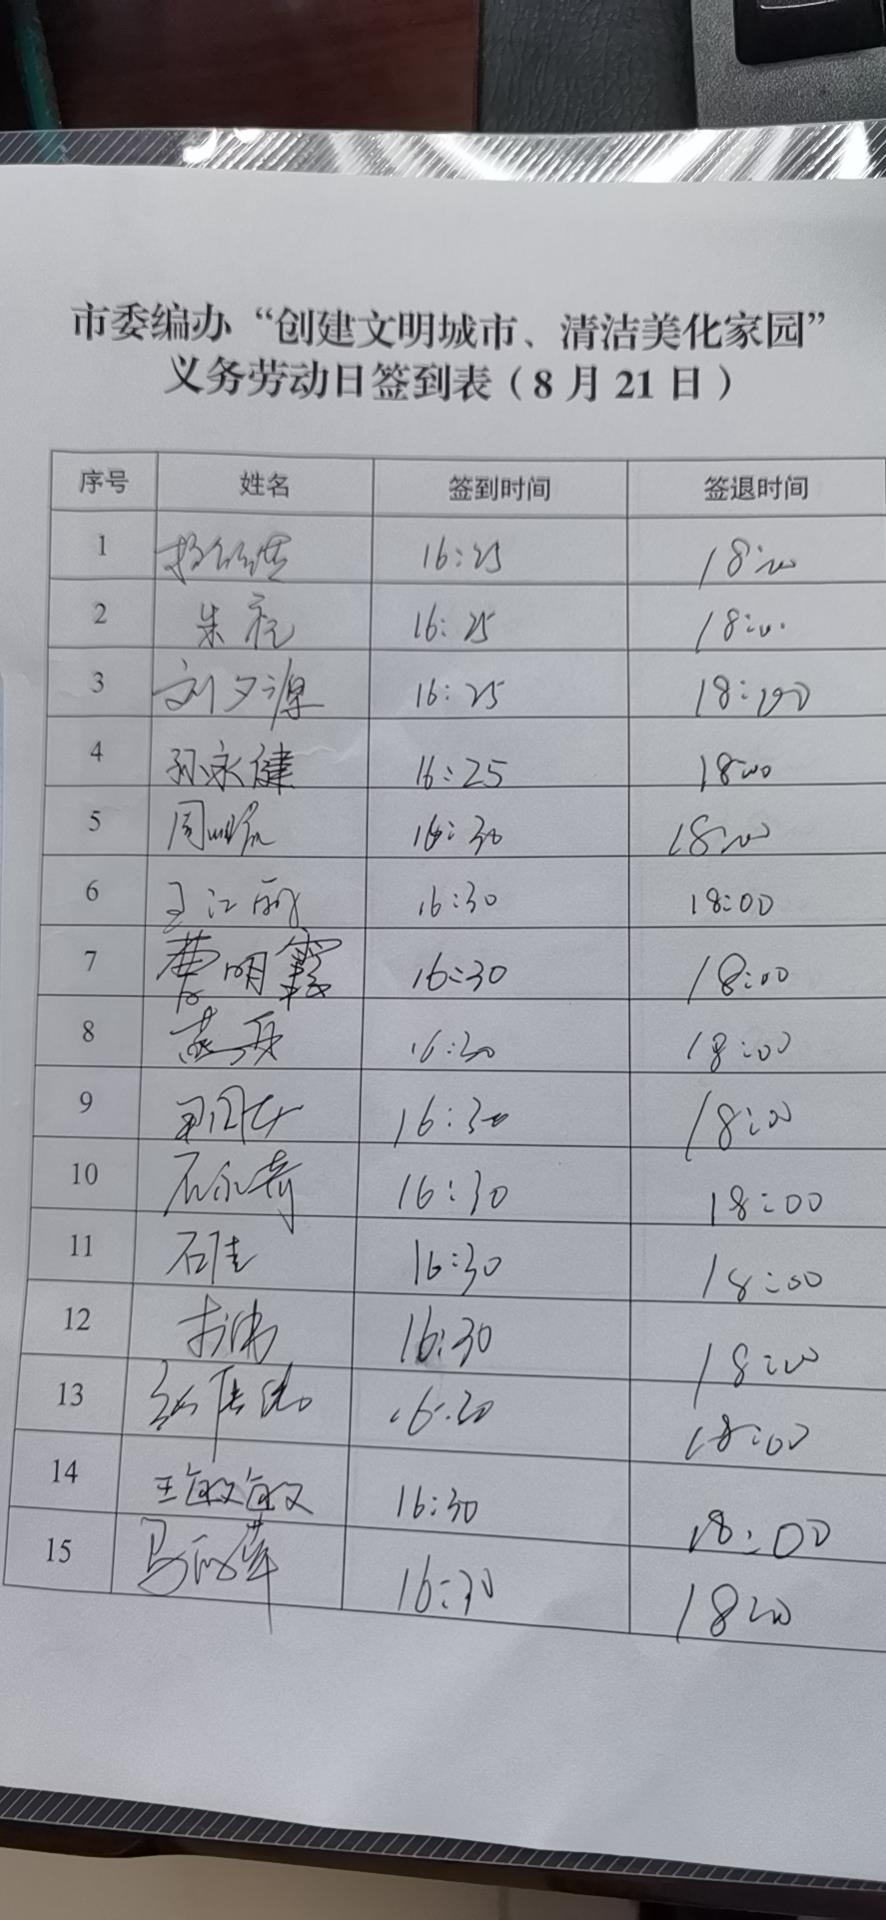 市委编办“创建文明城市、清洁美化家园”
义务劳动日签到表（8月21日）
序号 姓名 签到时间 签退时间
1 16:25 18:00
2 朱 16:25 18:00
3 刘夕源 16:25 18:00
4 孙永健 16:25 18:00
5 周 16:30 18:00
6 王江丽 16:30 18:00
7 曹明霞 16:30 18:00
8 16:30 18:00
9 16:30 18:00
10 石永奇 16:30 18:00
11 石佳 16:30 18:00
12 16:30 18:00
13 16:30 18:00
14 王敏敏 16:30 18:00
15 马丽萍 16:30 18:00